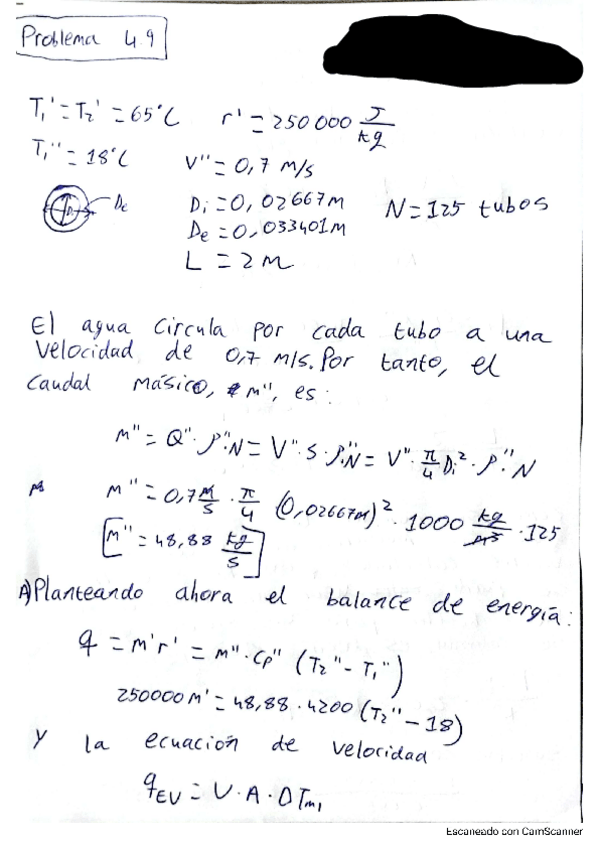 Problema 4.9
T₁' = T₂' = 65°C r' = 250 000 J/kg
T₁'' = 18°C V'' = 0,7 m/s
Di De Di = 0,02667 m N = 125 tubos
De = 0,033401 m
L = 2 m
El agua circula por cada tubo a una
velocidad de 0,7 m/s. Por tanto, el
caudal másico, m'', es:
m'' = Q''·ρ''·N = V''·S·ρ''·N = V''·π/4 Di²·ρ''·N
m'' = 0,7 m/s · π/4 (0,02667 m)² · 1000 kg/m³ · 125
[m'' = 48,88 kg/s]
A) Planteando ahora el balance de energía:
q = m'r' = m''·Cp'' (T₂'' - T₁'')
250000 m' = 48,88 · 4200 (T₂'' - 18)
y la ecuación de velocidad
qEV = U·A·DTml
Escaneado con CamScanner